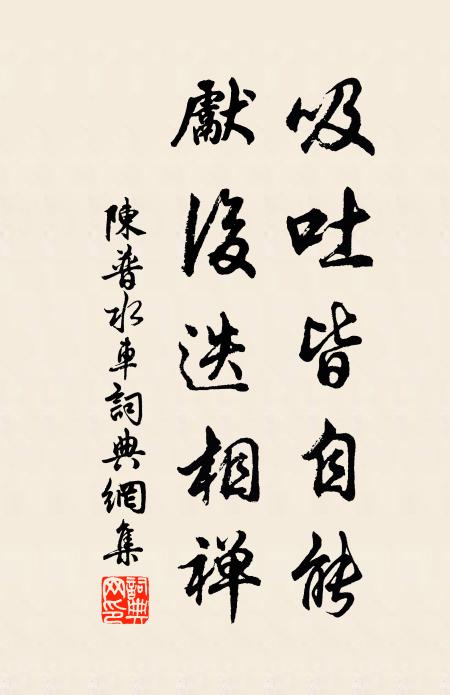 吸吐皆自能
獻後迭相禪
陳普水車詞典網集
詞典网印